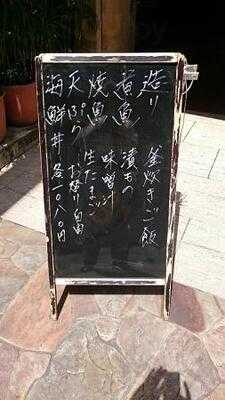 造り
煮魚
焼魚
天ぷら
海鮮丼 各一〇八〇円
釜炊きご飯
漬もの
味噌汁
生たまご
お替り自由